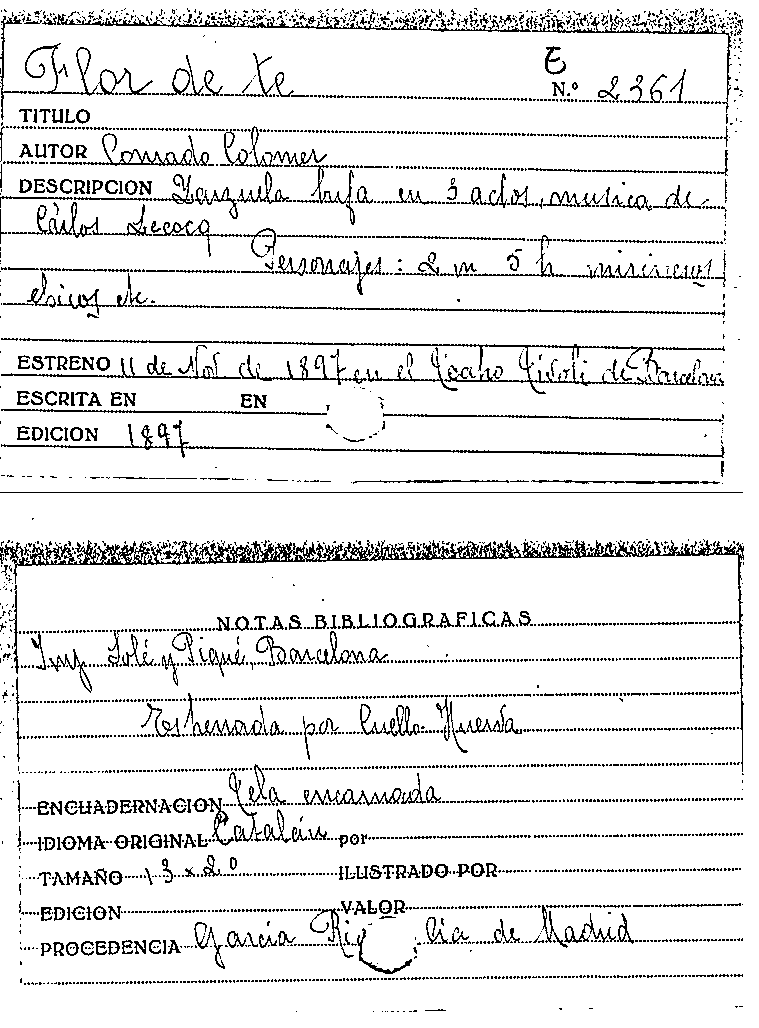 Flor de te
E
N.º 2361
TITULO
AUTOR Conrado Colomer
DESCRIPCION Zarzuela bufa en 3 actos, musica de
Carlos Lecocq
Personajes: 2 m 5 h
chicos etc.
ESTRENO 11 de Nov de 1897 en el Teatro Tivoli de Barcelona
ESCRITA EN EN
EDICION 1897
NOTAS BIBLIOGRAFICAS
Imp Solé y Piqué, Barcelona
Estrenada por Cuello
ENCUADERNACION Tela encarnada
IDIOMA ORIGINAL Catalán por
TAMAÑO 13 x 20 ILLUSTRADO POR
EDICION VALOR
PROCEDENCIA Garcia de Madrid